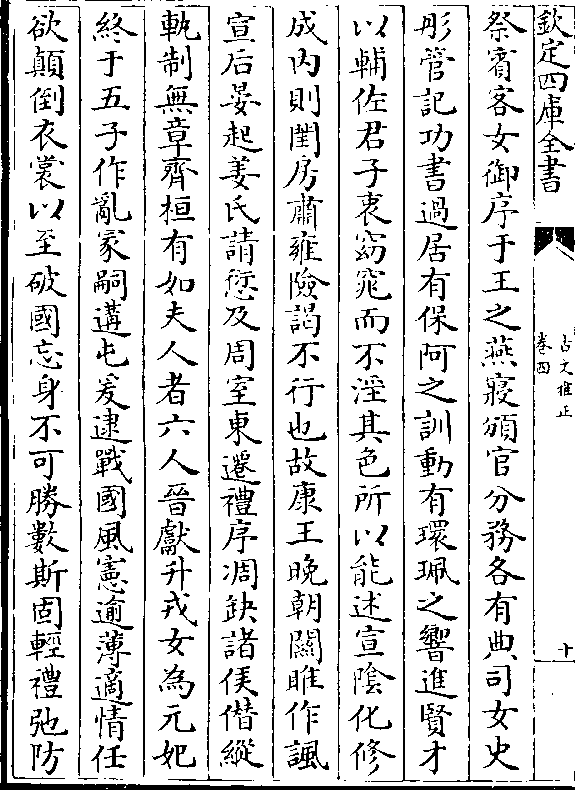 欽定四庫全書
古文雅正
卷四
十
祭賓客女御序于王之燕寢頒官分務各有典司女史
彤管記功書過居有保阿之訓動有環珮之響進賢才
以輔佐君子哀窈窕而不淫其色所以能述宣陰化修
成内則閨房肅雍險謁不行也故康王晚朝關雎作諷
宣后晏起姜氏請愆及周室東遷禮序凋缺諸侯僭縱
軌制無章齊桓有如夫人者六人晉獻升戎女為元妃
終于五子作亂冡嗣遘屯爰逮戰國風憲逾薄適情任
欲顛倒衣裳以至破國忘身不可勝數斯固輕禮弛防